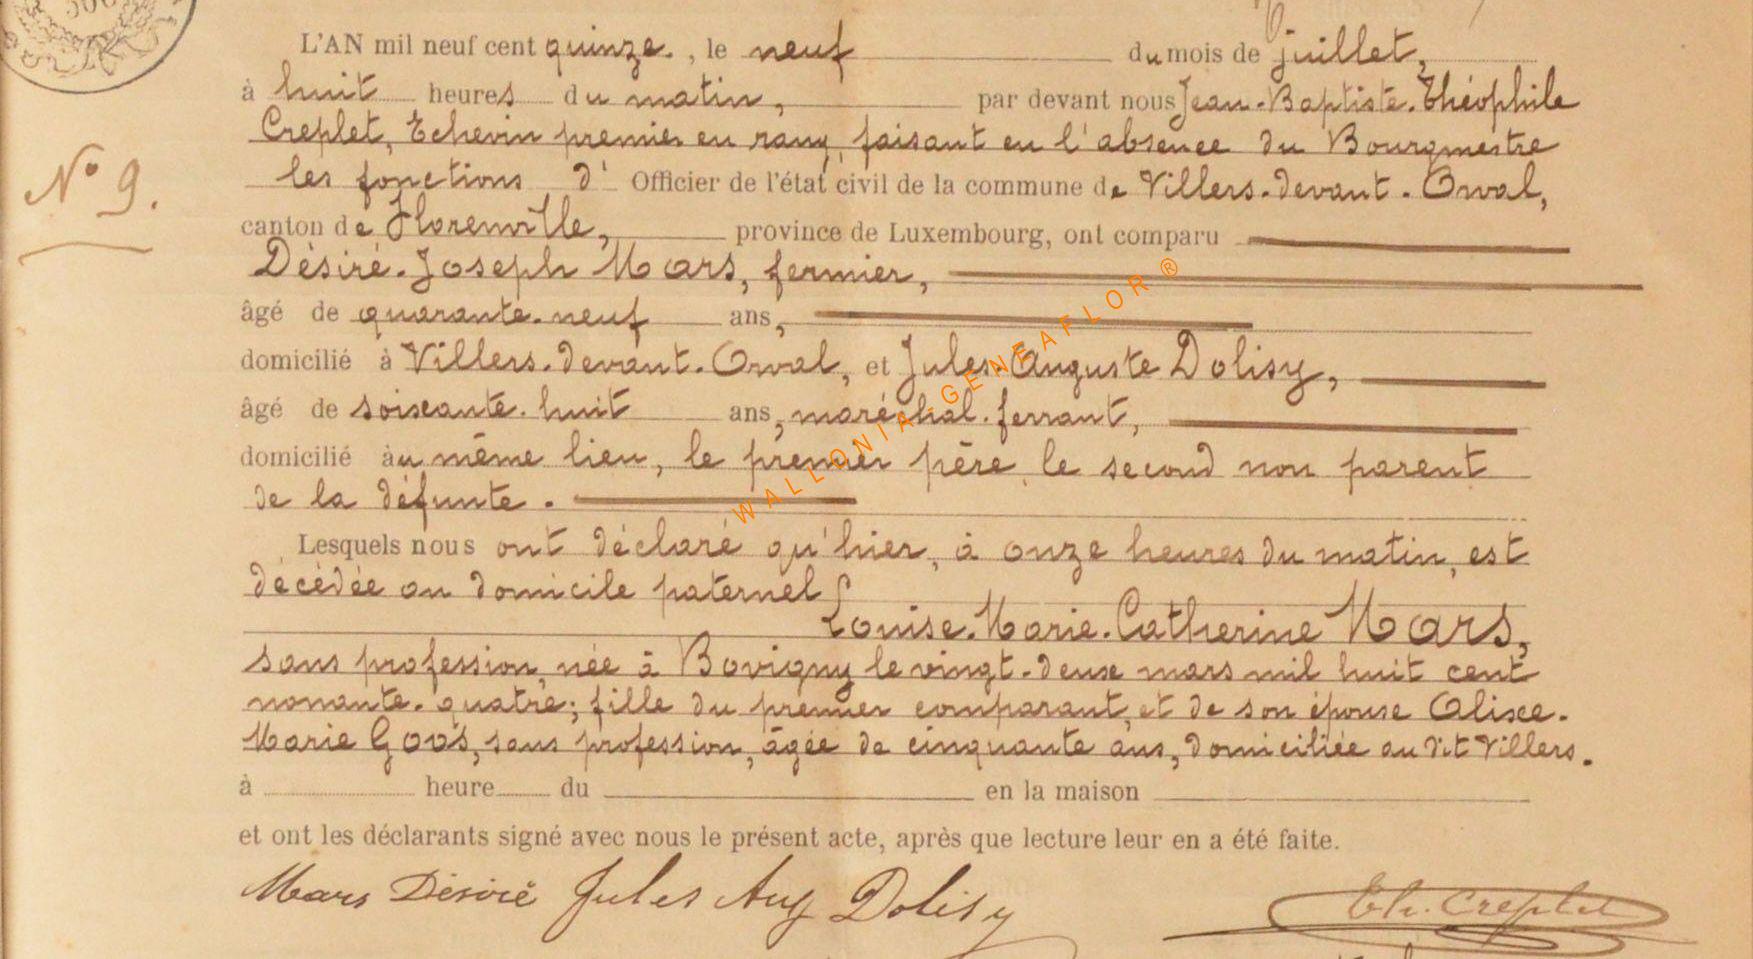 L'AN mil neuf cent quinze. , le neuf du mois de juillet,
à huit heures du matin, par devant nous Jean-Baptiste-Théophile
Creplet, Echevin premier en rang, faisant en l'absence du Bourgmestre
les fonctions d' Officier de l'état civil de la commune de Villers-devant-Orval,
N° 9.
canton de Florenville, province de Luxembourg, ont comparu
Désiré-Joseph Mars, fermier,
âgé de quarante-neuf ans,
domicilié à Villers-devant-Orval, et Jules-Auguste Dolisy,
âgé de soixante-huit ans, maréchal-ferrant,
domicilié au même lieu, le premier père, le second non parent
de la défunte.
Lesquels nous ont déclaré qu'hier, à onze heures du matin, est
décédée au domicile paternel
Louise-Marie-Catherine Mars,
sans profession, née à Bovigny le vingt-deux mars mil huit cent
nonante-quatre; fille du premier comparant, et de son épouse Alixe-
Marie Goos, sans profession, âgée de cinquante ans, domiciliée au dit Villers.
à heure du en la maison
et ont les déclarants signé avec nous le présent acte, après que lecture leur en a été faite.
Mars Désiré Jules Aug Dolisy Th. Creplet
WALLONIA-GENEAFLOR ®